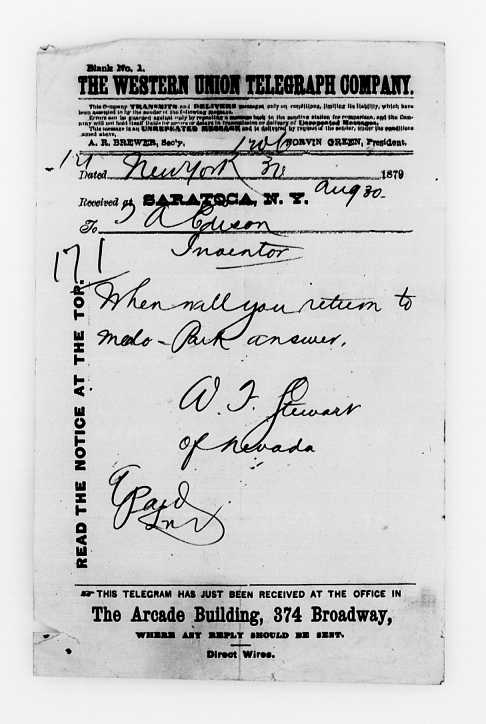 Blank No. 1.
THE WESTERN UNION TELEGRAPH COMPANY.
This Company TRANSMITS and DELIVERS messages only on conditions, limiting its liability, which have
been assented to by the sender of the following message.
Errors can be guarded against only by repeating a message back to the sending station for comparison, and the Com-
pany will not hold itself liable for errors or delays in transmission or delivery of Unrepeated Messages.
This message is an UNREPEATED MESSAGE and is delivered by request of the sender, under the conditions
named above,
A. R. BREWER, Sec'y. NORVIN GREEN, President.
Dated New York 30 1879
Received at SARATOGA, N. Y. Aug 30
To T A Edison
Inventor
171
READ THE NOTICE AT THE TOP.
When will you return to
Menlo-Park answer.
W. F. Stewart
of Nevada
Paid
THIS TELEGRAM HAS JUST BEEN RECEIVED AT THE OFFICE IN
The Arcade Building, 374 Broadway,
WHERE ANY REPLY SHOULD BE SENT.
Direct Wires.